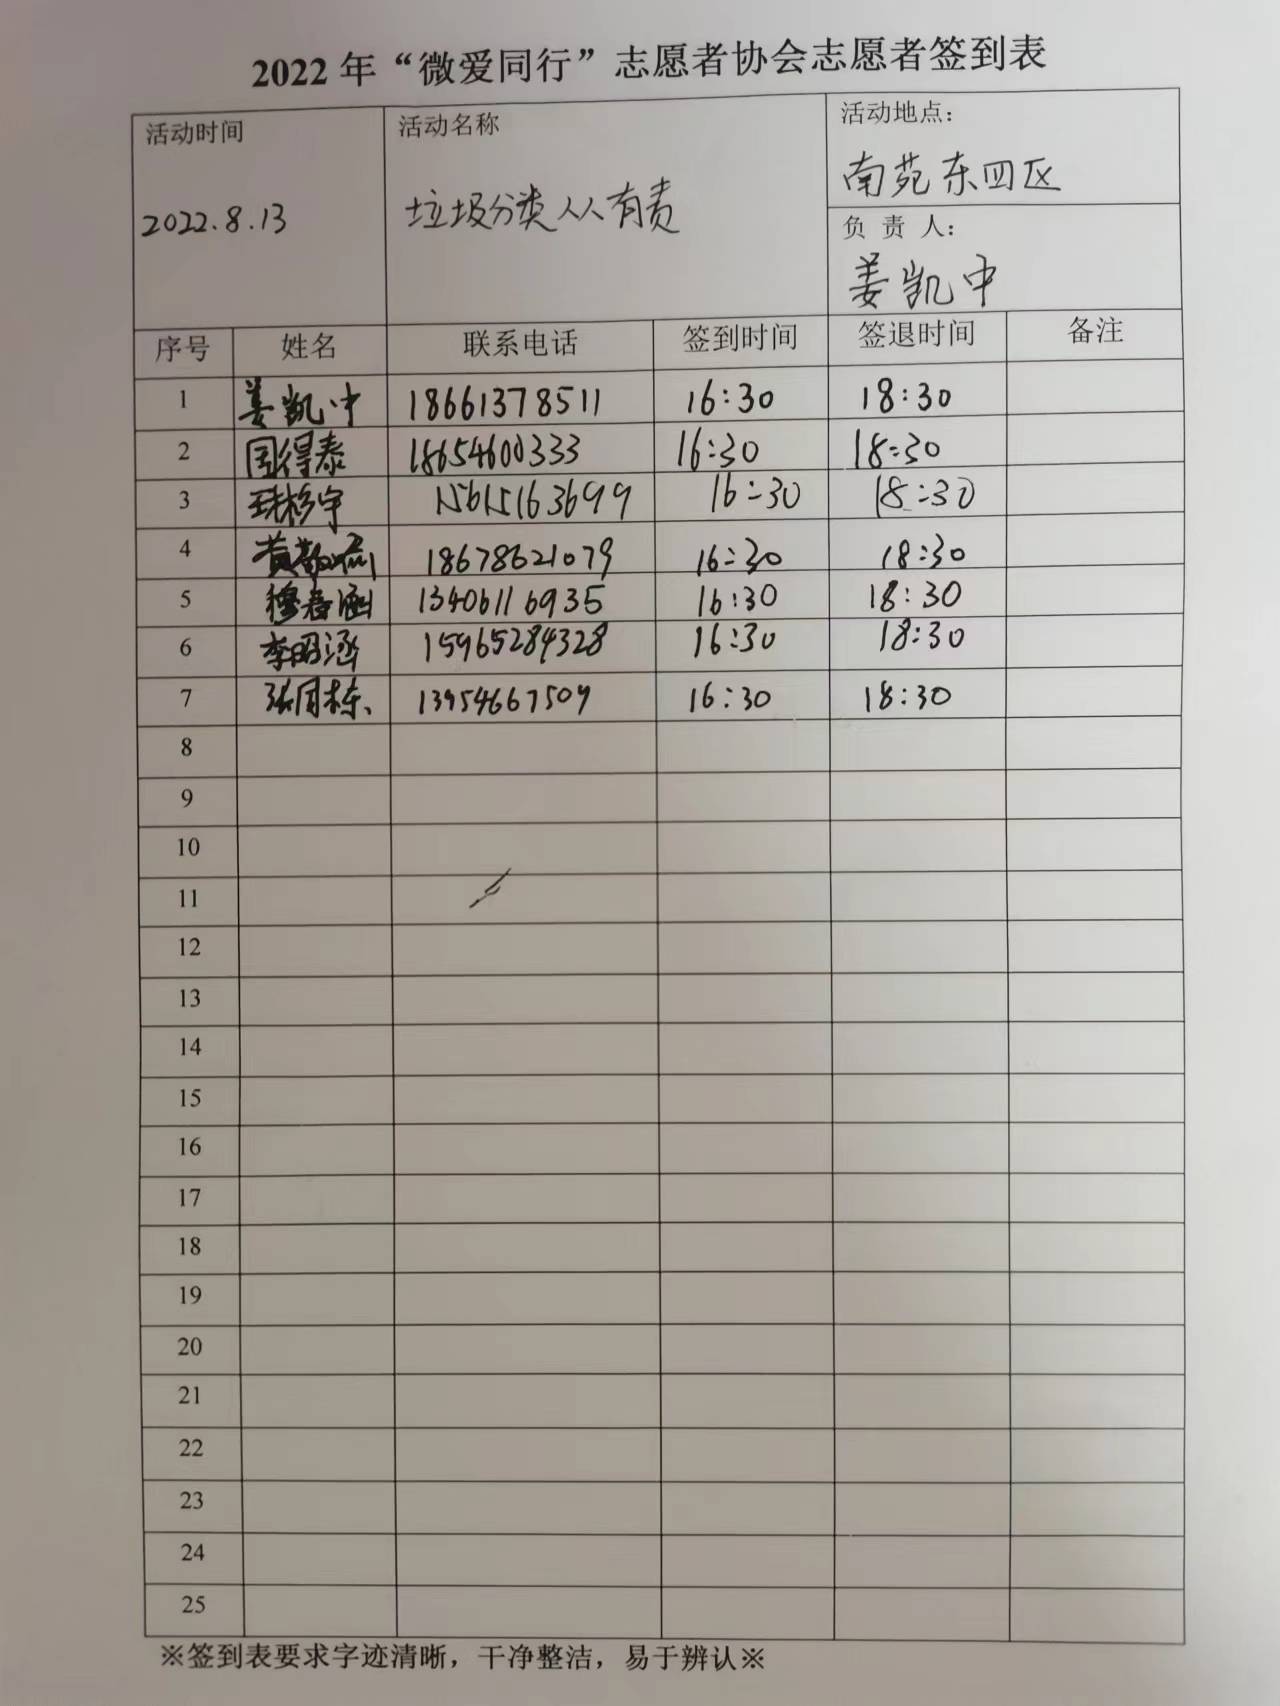 2022年“微爱同行”志愿者协会志愿者签到表
活动时间 活动名称 活动地点：
2022.8.13 垃圾分类人人有责 南苑东四区
负责人：
姜凯中
序号 姓名 联系电话 签到时间 签退时间 备注
1 姜凯中 18661378511 16:30 18:30
2 国得泰 18654600333 16:30 18:30
3 15615163699 16:30 18:30
4 18678621079 16:30 18:30
5 穆春涵 13406116935 16:30 18:30
6 李昭涵 15965284328 16:30 18:30
7 张周栋 13954667509 16:30 18:30
8
9
10
11
12
13
14
15
16
17
18
19
20
21
22
23
24
25
※签到表要求字迹清晰，干净整洁，易于辨认※